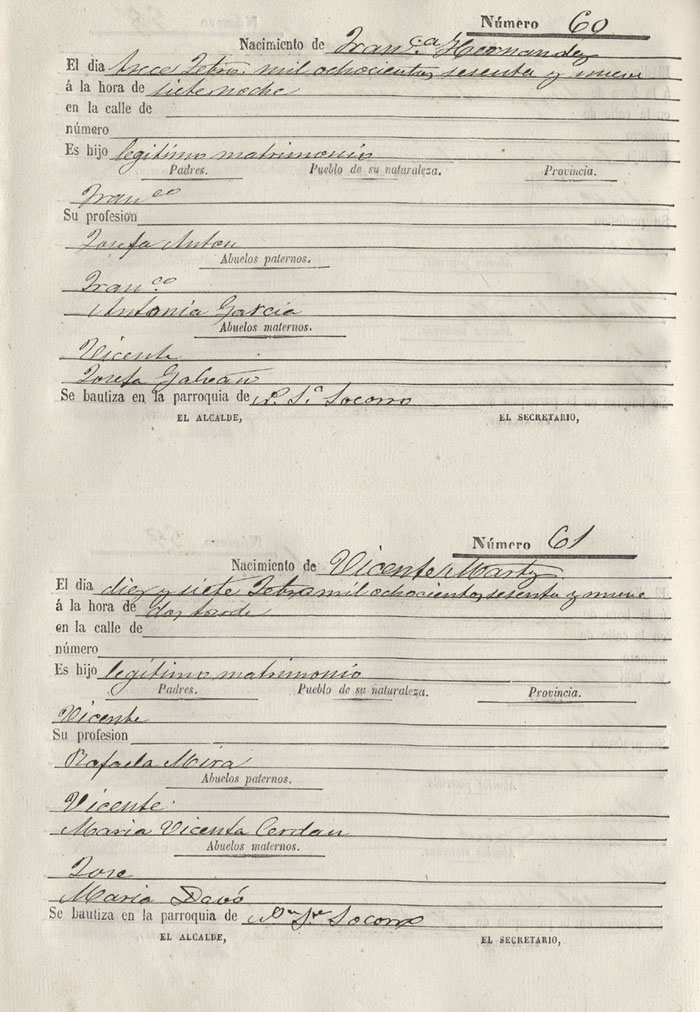 Número 60
Nacimiento de Fran.ca Hernandez
El dia trece Febro. mil ochocientos sesenta y nueve
á la hora de siete noche
en la calle de
número
Es hijo legítimo matrimonio
Padres. Pueblo de su naturaleza. Provincia.
Fran.co
Su profesion
Josefa Anton
Abuelos paternos.
Fran.co
Antonia Garcia
Abuelos maternos.
Vicente
Josefa Galvañ
Se bautiza en la parroquia de N. S.a Socorro
EL ALCALDE, EL SECRETARIO,
Número 61
Nacimiento de Vicente Martz
El dia diez y siete Febro mil ochocientos sesenta y nueve
á la hora de dos tarde
en la calle de
número
Es hijo legítimo matrimonio
Padres. Pueblo de su naturaleza. Provincia.
Vicente
Su profesion
Rafaela Mira
Abuelos paternos.
Vicente
Maria Vicenta Cerdan
Abuelos maternos.
Jose
Maria Davó
Se bautiza en la parroquia de Socorro
EL ALCALDE, EL SECRETARIO,